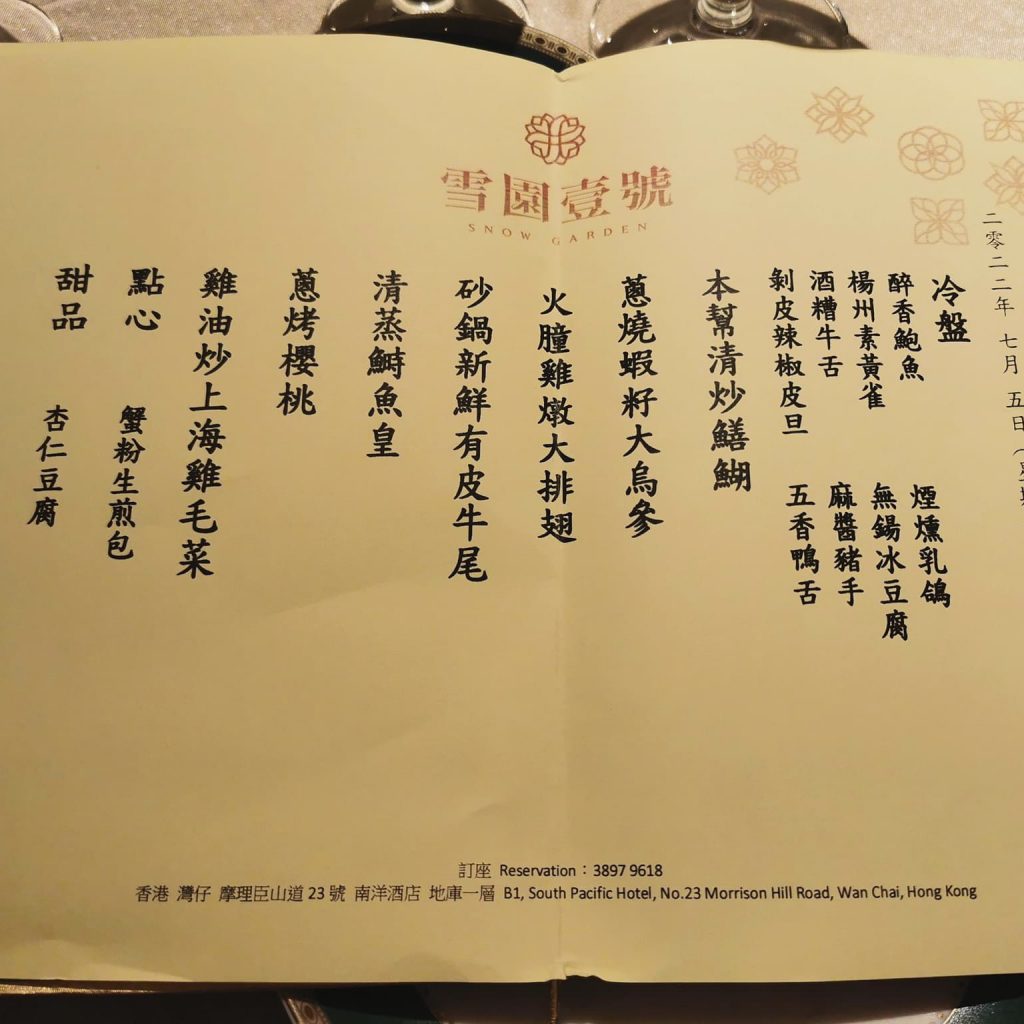 雪園壹號
SNOW GARDEN
二零二二年 七月 五日
冷盤
醉香鮑魚 煙燻乳鴿
楊州素黃雀 無錫冰豆腐
酒糟牛舌 麻醬豬手
剝皮辣椒皮旦 五香鴨舌
本幫清炒鱔鰗
蔥燒蝦籽大烏參
火腫雞燉大排翅
砂鍋新鮮有皮牛尾
清蒸鰣魚皇
蔥烤櫻桃
雞油炒上海雞毛菜
點心 蟹粉生煎包
甜品 杏仁豆腐
訂座 Reservation：3897 9618
香港 灣仔 摩理臣山道 23 號 南洋酒店 地庫一層 B1, South Pacific Hotel, No.23 Morrison Hill Road, Wan Chai, Hong Kong